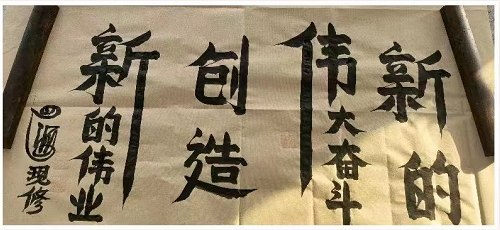 新的
伟大奋斗
创造
新的伟业
现修